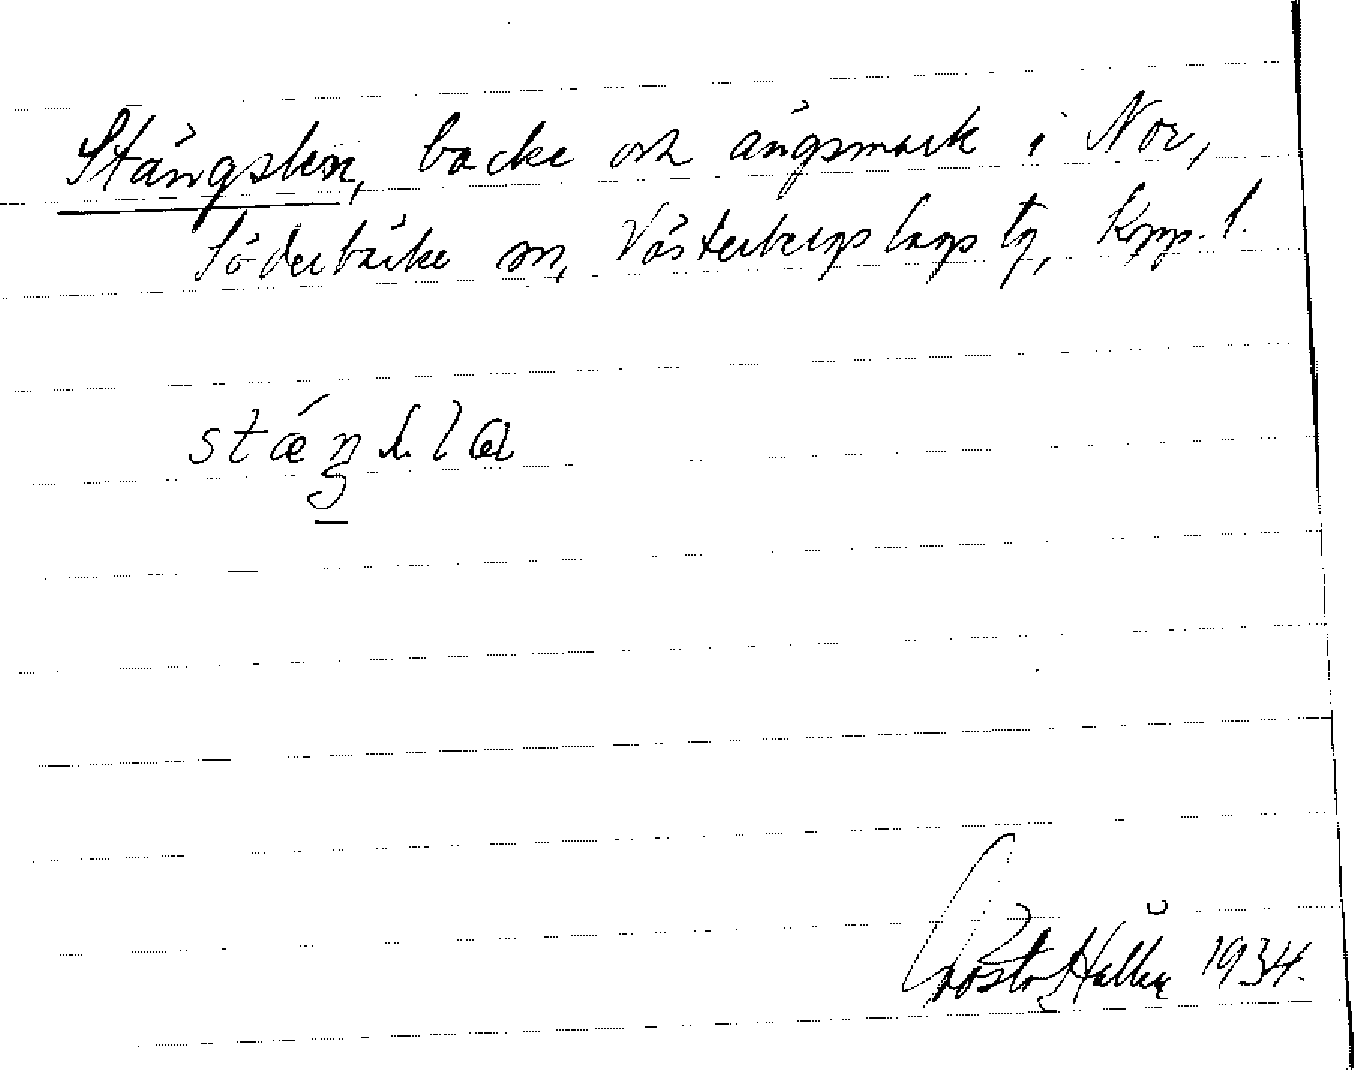 Stängslen, backe och ängsmark i Nor,
Söderbärke sn, Västerbergslags tg, Kpp. l.
Gösta Hallén 1934.